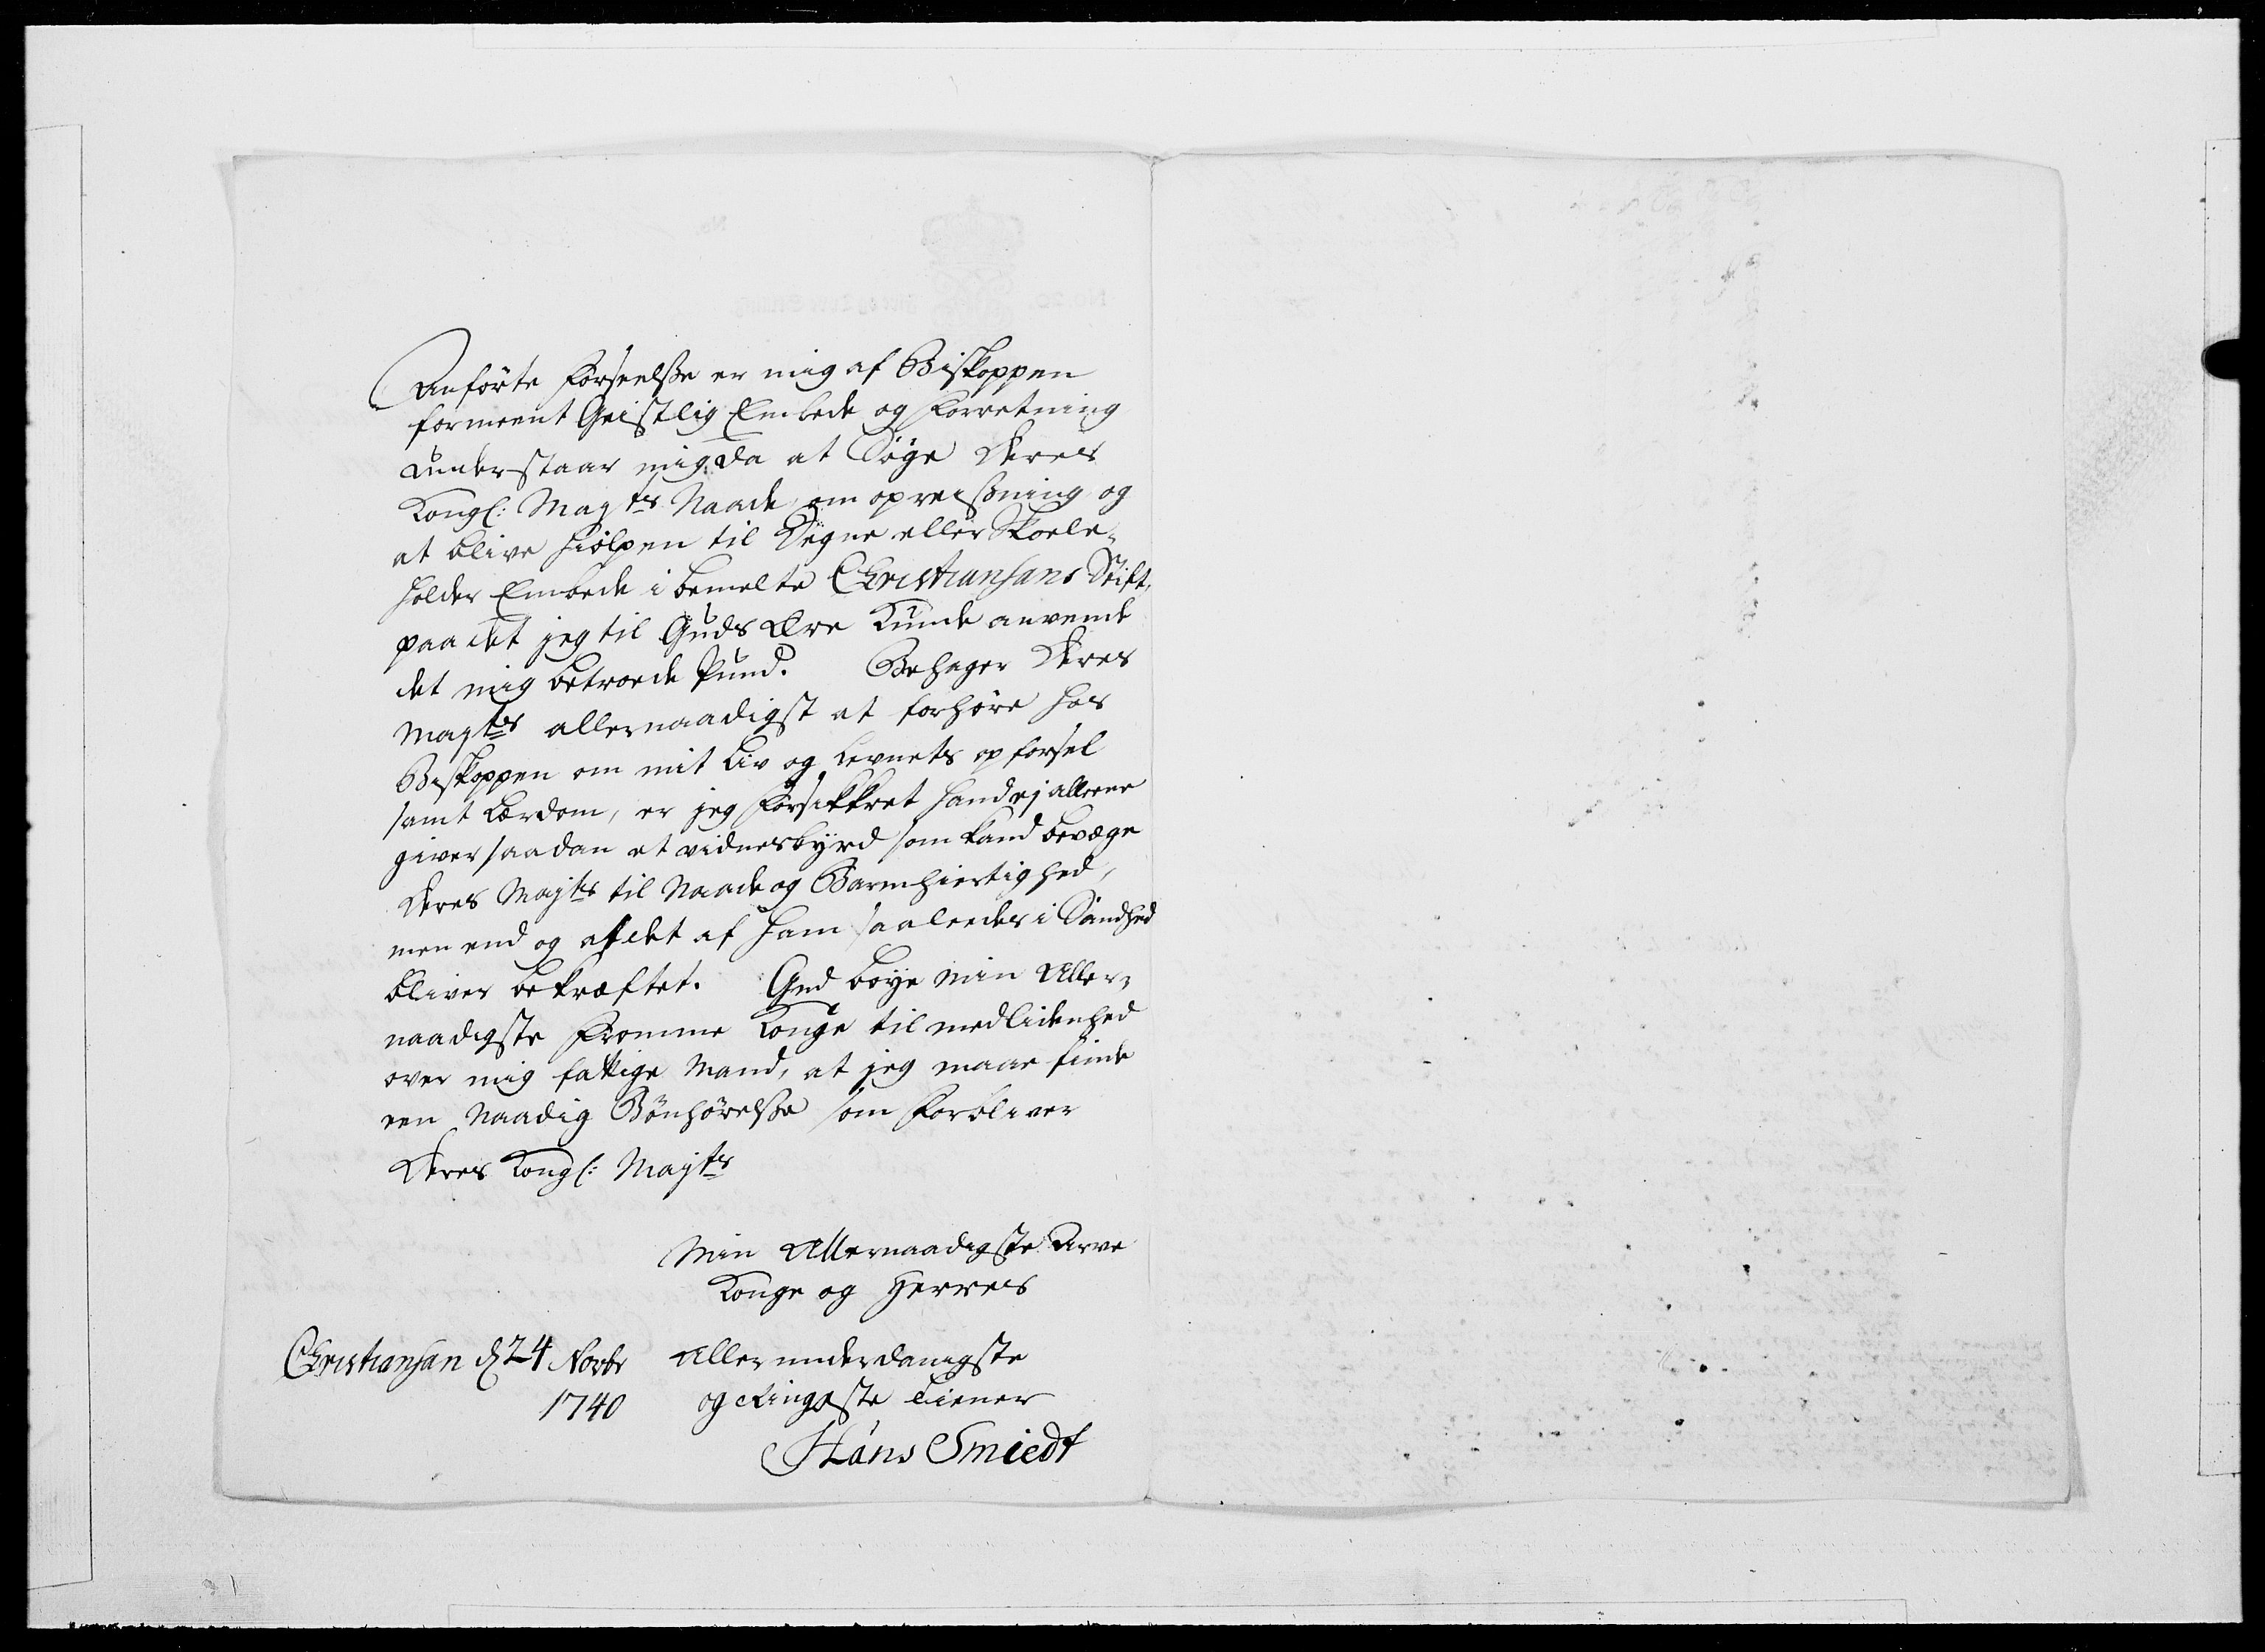 Anförte Forseelsse er mig af Biskoppen
formeent Geistlig Embede og Forretning
understaar mig da at Söge Deres
Kongl: Mayts Naade om opreisning og
at blive hiolpen til Degne eller Skoele-
holder Embede i bemelte Christiansans Stift,
paa det jeg til Guds Ære Kunde anvende
det mig betroede Pund. Behager Deres
Mayts allernaadigst at forhöre hos
Biskoppen om mit Liv og Levnets opförsel
samt Lærdom, er jeg Forsikkret hand ej alleene
giver saadan et vidnesbyrd som kand bevæge
Deres Mayts til Naade og Barmhiertighed,
men end og at det af ham saaleedes i Sandhed
bliver bekræftet. Gud böye min Aller-
naadigste Fromme Konge til medlidenhed
over mig fattige Mand, at jeg maae finde
een Naadig Bönhörelsse som Forbliver
Deres Kongl: Mayts
Min Allernaadigste Arve
Konge og Herres
Christiansan d 24 Novbr
1740
Allerunderdanigste
og Ringeste tiener
Hans Smiedt